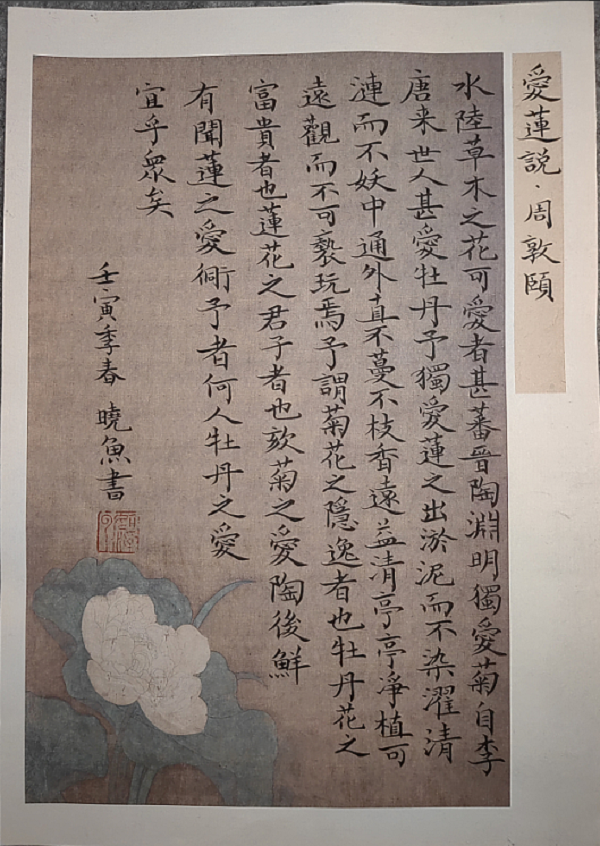 愛蓮説·周敦頤
水陸草木之花可愛者甚蕃晉陶淵明獨愛菊自李
唐来世人甚愛牡丹予獨愛蓮之出淤泥而不染濯清
漣而不妖中通外直不蔓不枝香遠益清亭亭淨植可
遠觀而不可褻玩焉予謂菊花之隱逸者也牡丹花之
富貴者也蓮花之君子者也欸菊之愛陶後鮮
有聞蓮之愛衕予者何人牡丹之愛
宜乎衆矣
壬寅季春 曉魚書